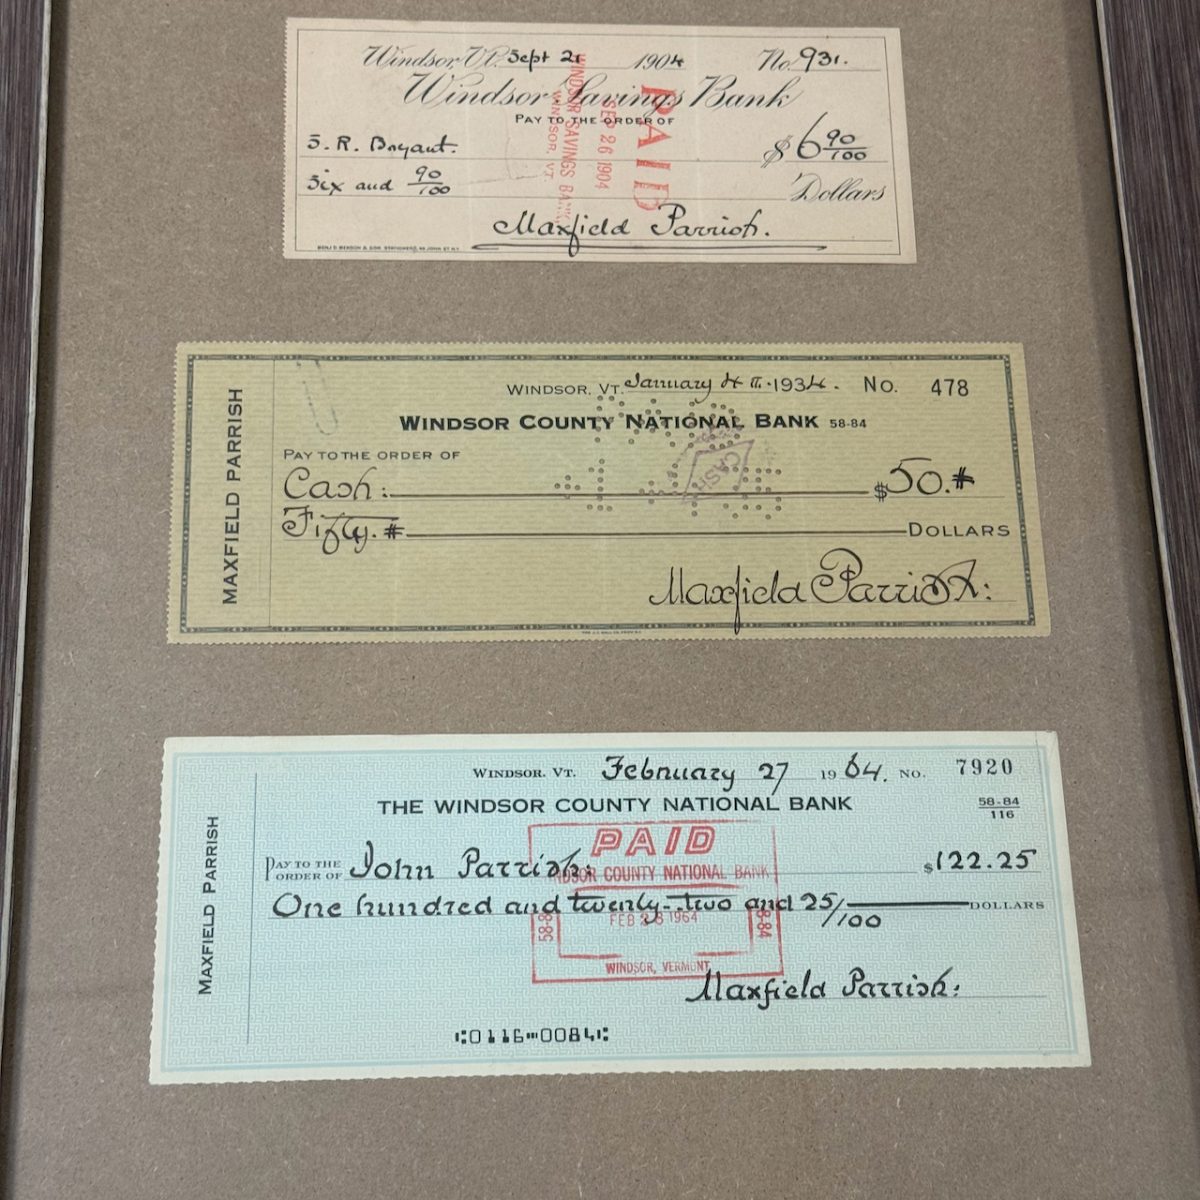 Windsor, Vt. Sept 21 1904 No. 931.
Windsor Savings Bank
PAY TO THE ORDER OF
S. R. Bryant. $6 90/100
Six and 90/100 Dollars
Maxfield Parrish.
BENJ D. BENSON & SON STATIONERS, JOHN ST. N.Y.
WINDSOR SAVINGS BANK
WINDSOR, VT.
SEP 26 1904
PAID
MAXFIELD PARRISH
WINDSOR, VT. January 4 1934. No. 478
WINDSOR COUNTY NATIONAL BANK 58-84
PAY TO THE ORDER OF
Cash: $50.#
Fifty.# DOLLARS
Maxfield Parrish:
CASH
MAXFIELD PARRISH
WINDSOR. VT. February 27 1964. No. 7920
THE WINDSOR COUNTY NATIONAL BANK 58-84/116
PAY TO THE ORDER OF John Parrish: $122.25
One hundred and twenty-two and 25/100 DOLLARS
Maxfield Parrish:
PAID
WINDSOR COUNTY NATIONAL BANK
FEB 28 1964
58-8 8-84
WINDSOR, VERMONT
⑆0116⑉0084⑆